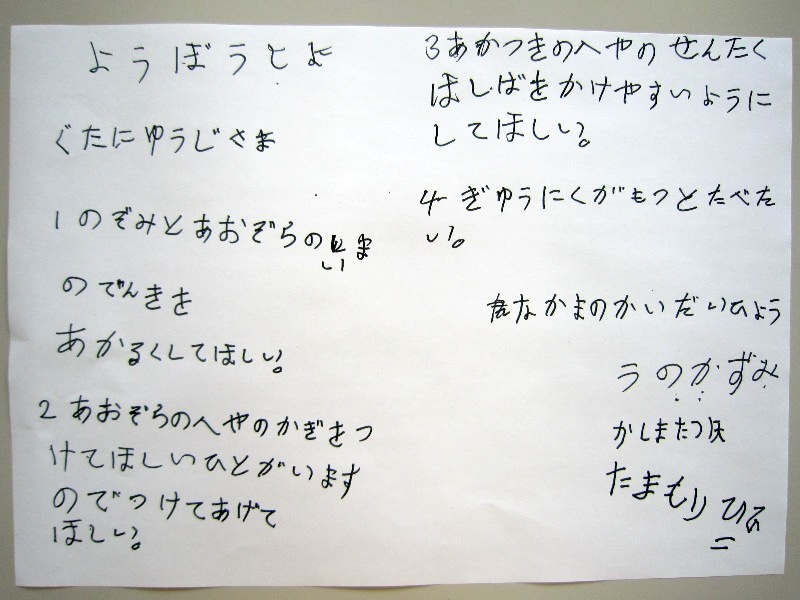 ようぼうとよ
ぐたにゆうじさま
1 のぞみとあおぞらのいま
のでんきを
あかるくしてほしい。
2 あおぞらのへやのかぎをつ
けてほしいひとがいます
のでつけてあげて
ほしい。
3 あかつきのへやの せんたく
ほしばをかけやすいように
してほしい。
4 ぎゅうにくがもっとたべた
い。
なかまのかいだいひょう
うのかずみ
かしまたつ
たまもり